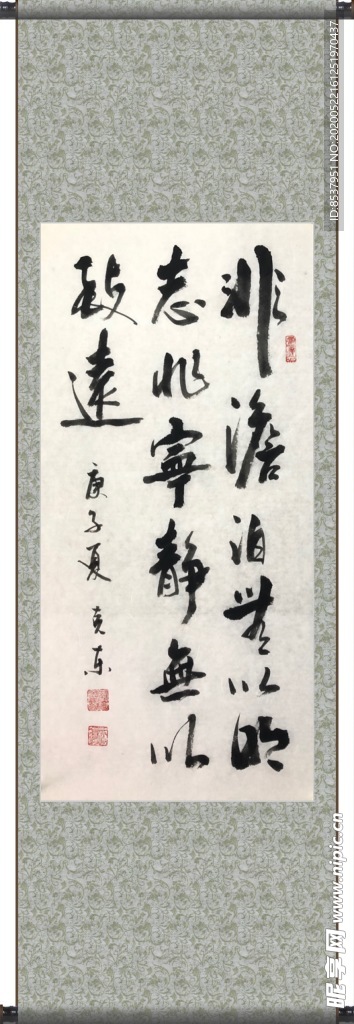 非澹泊無以明
志非寧静無以
致遠
庚子夏 克东
ID:8537951 NO:20200522161251970437
昵享网 www.nipic.cn